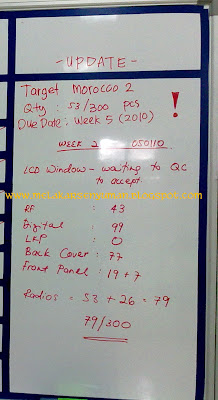 - UPDATE -
Target Morocco 2
Qty : 53/300 pcs
!
Due Date : Week 5 (2010)
WEEK 2 - 050110
LCD Window - waiting to QC
to accept
RF : 43
Digital : 99
LKP : 0
Back Cover : 77
Front Panel : 19 + 7
Radios = 53 + 26 = 79
79/300